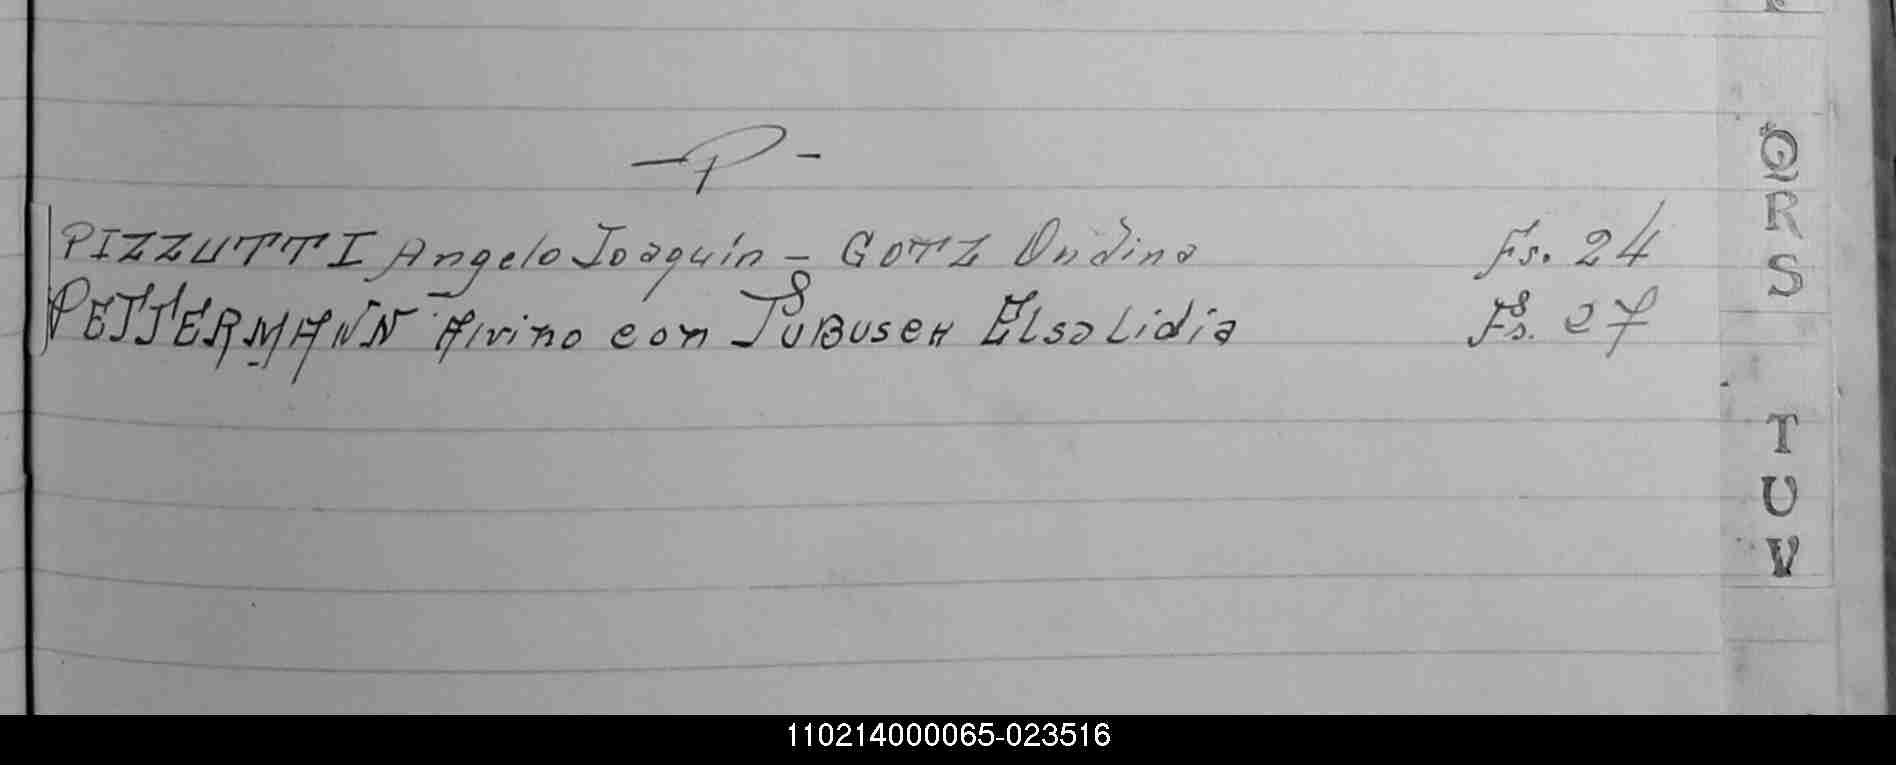 -P-
PIZZUTTI Angelo Joaquín - GOTZ Ondina Fs. 24
PETTERMANN Alvino con Elsa Lidia Fs. 27
Q
R
S
T
U
V
110214000065-023516